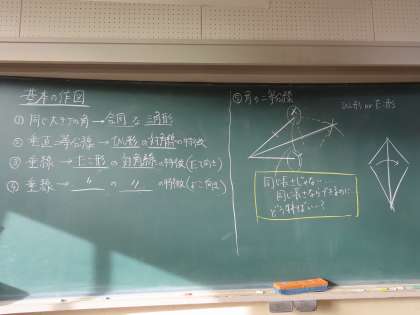 基本の作図
① 同じ大きさの角→合同な三角形
② 垂直二等分線→ひし形の対角線の特徴
③ 垂線→たこ形の対角線の特徴(たて向き)
④ 垂線→ 〃 の 〃 の特徴(よこ向き)
⑤ 角の二等分線
ひし形 or たこ形
同じ長さじゃない…
同じ長さならできるのに…
どうすればいい?